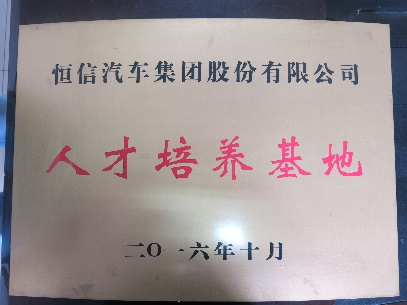 恒信汽车集团股份有限公司
人才培养基地
二〇一六年十月